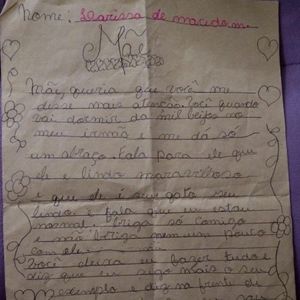 Nome: Larissa de macedo m
Mãe
Mãe, queria que você me
desse mais atenção. Você quando
vai dormir da mil beijos no
meu irmão e me dá só
um abraço. Fala para ele que
ele e lindo maravilhoso
e que ele é seu gato seu
lindo e fala que eu estau
normal. Briga só comigo
e não briga nem um pouco
com ele.
Você deixa eu fazer tudo e
diz que eu sigo mais o seu
exemplo e diz na frente de